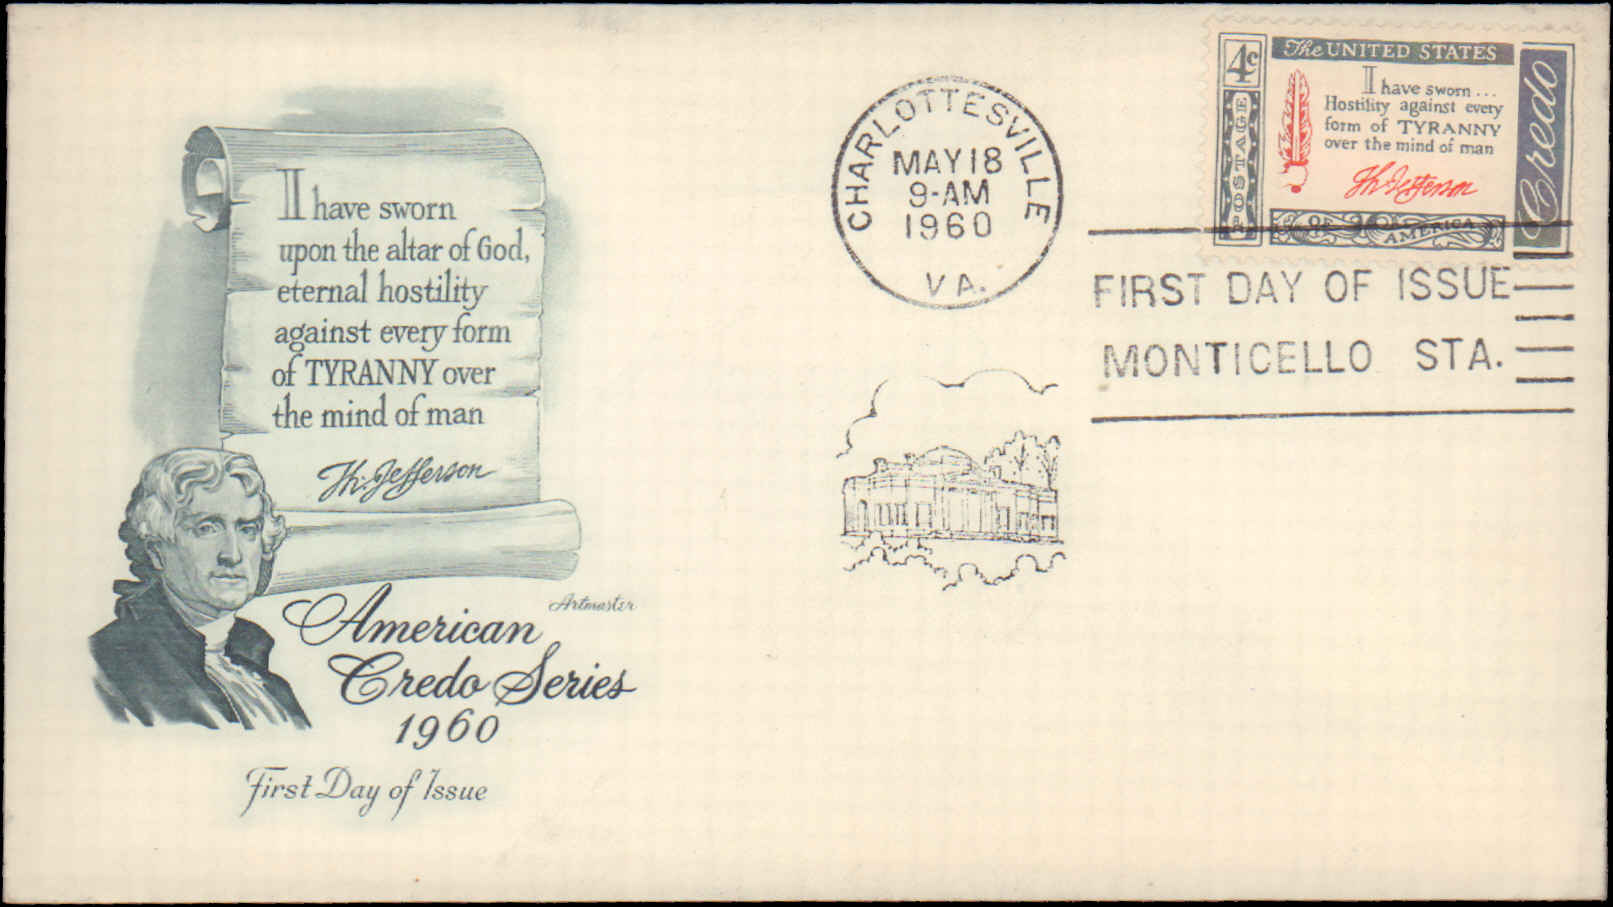 I have sworn
upon the altar of God,
eternal hostility
against every form
of TYRANNY over
the mind of man
Th. Jefferson
Artmaster
American
Credo Series
1960
First Day of Issue
CHARLOTTESVILLE
MAY 18
9-AM
1960
VA.
4c
POSTAGE
The UNITED STATES
I have sworn...
Hostility against every
form of TYRANNY
over the mind of man
Th Jefferson
OF AMERICA
Credo
FIRST DAY OF ISSUE
MONTICELLO STA.